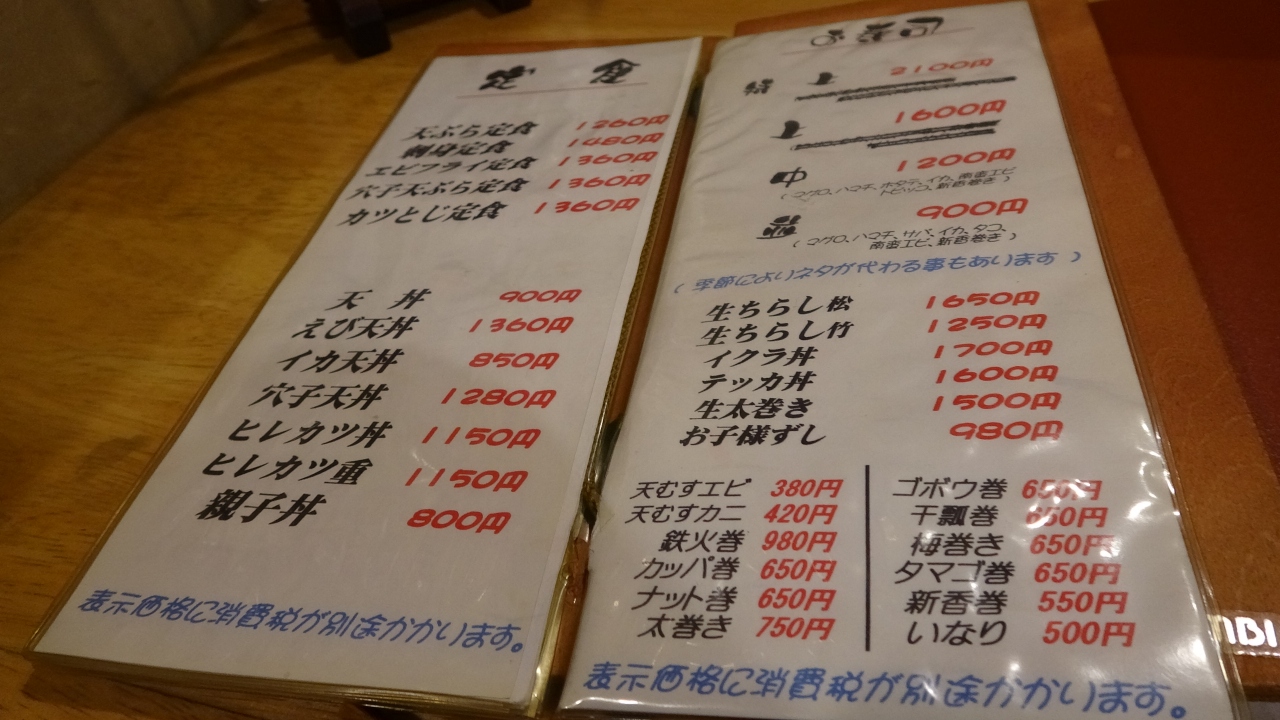 定食
天ぷら定食 1260円
刺身定食 1480円
エビフライ定食 1360円
穴子天ぷら定食 1360円
カツとじ定食 1360円
天丼 900円
えび天丼 1360円
イカ天丼 850円
穴子天丼 1280円
ヒレカツ丼 1150円
ヒレカツ重 1150円
親子丼 800円
表示価格に消費税が別途かかります。
お寿司
特上 2100円
上 1600円
中 1200円
(マグロ、ハマチ、ホタテ、イカ、南蛮エビ
トビッコ、新香巻き)
並 900円
(マグロ、ハマチ、サバ、イカ、タコ、
南蛮エビ、新香巻き)
(季節によいネタが代わる事もあります)
生ちらし松 1650円
生ちらし竹 1250円
イクラ丼 1700円
テッカ丼 1600円
生太巻き 1500円
お子様ずし 980円
天むすエビ 380円
天むすカニ 420円
鉄火巻 980円
カッパ巻 650円
ナット巻 650円
太巻き 750円
ゴボウ巻 650円
干瓢巻 650円
梅巻き 650円
タマゴ巻 650円
新香巻 550円
いなり 500円
表示価格に消費税が別途かかります。